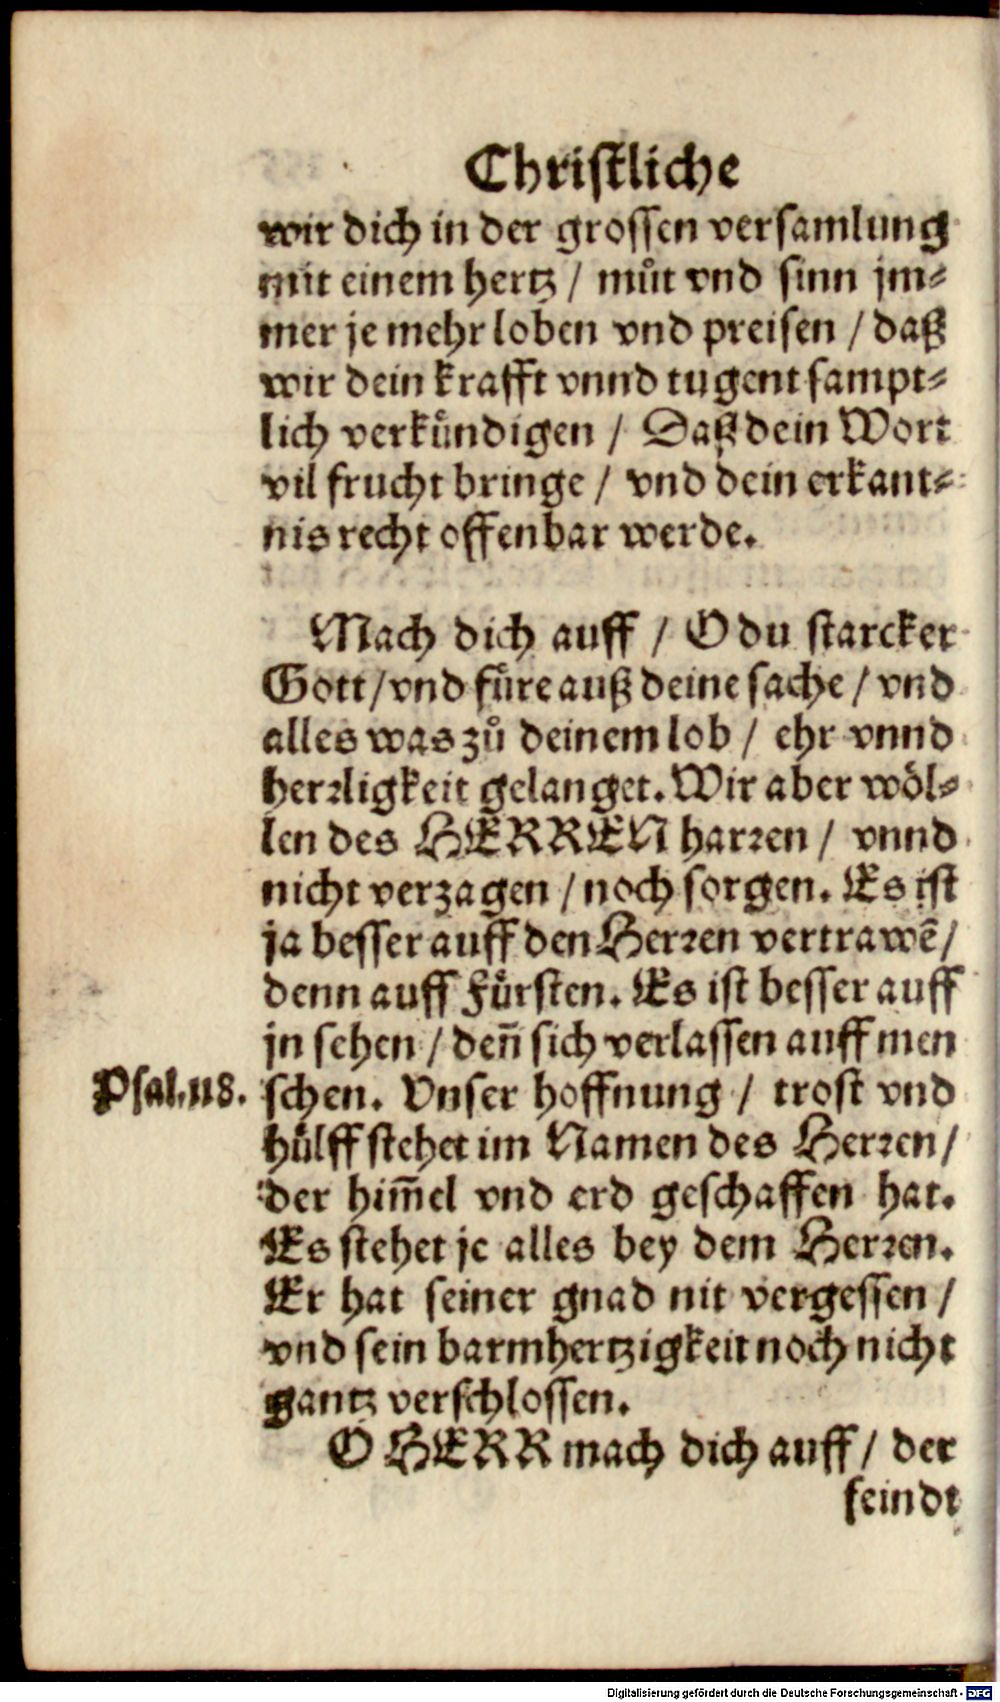 Christliche
wir dich in der grossen versamlung
mit einem hertz / můt vnd sinn jm⸗
mer je mehr loben vnd preisen / daß
wir dein krafft vnnd tugent sampt⸗
lich verkündigen / Daß dein Wort
vil frucht bringe / vnd dein erkant⸗
nis recht offenbar werde.
Mach dich auff / O du starcker
Gott / vnd füre auß deine sache / vnd
alles was zů deinem lob / ehr vnnd
herrligkeit gelanget. Wir aber wöl⸗
len des HERREN harren / vnnd
nicht verzagen / noch sorgen. Es ist
ja besser auff den Herren vertrawẽ /
denn auff Fürsten. Es ist besser auff
jn sehen / deñ sich verlassen auff men
Psal. 118. schen. Vnser hoffnung / trost vnd
hülff stehet im Namen des Herren /
der him̃el vnd erd geschaffen hat.
Es stehet je alles bey dem Herren.
Er hat seiner gnad nit vergessen /
vnd sein barmhertzigkeit noch nicht
gantz verschlossen.
O HERR mach dich auff / der
feindt
Digitalisierung gefördert durch die Deutsche Forschungsgemeinschaft - DFG